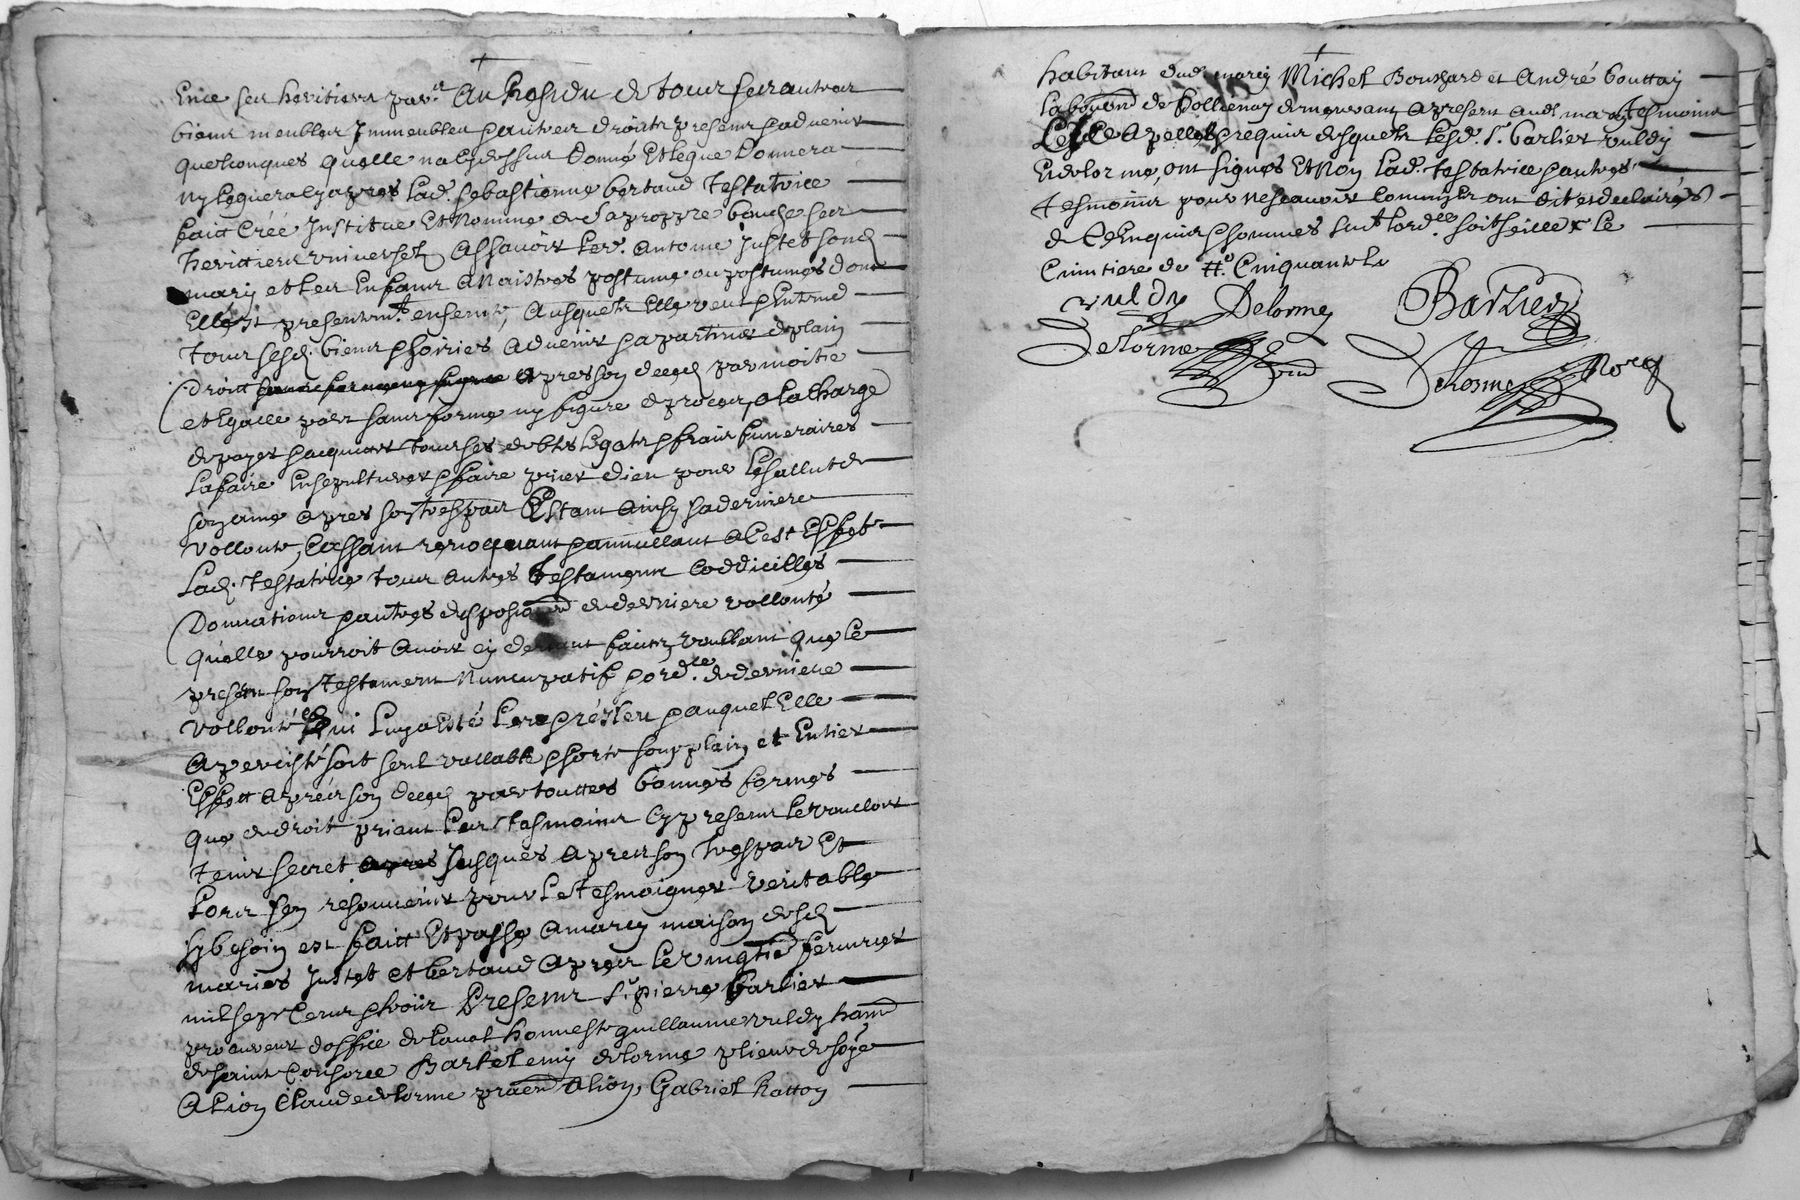 Au Residu de tous ses autres
biens meubles Immeubles & autres droits presens & advenir
quelconques quelle na cy dessus donné et legue donnera
ny leguera cy apres lad. Sebastienne bertaud testatrice
faict créé Institue et Nomme de sa propre bouche ses
heritiers universels Assavoir led. Antoine Justet sond
mary et les Enfans a Naistres postume ou postumes dont
Elle est presentemt. enseinte, Ausquels Elle veut & Entend
tous sesd. biens & hoiries advenir & apartenir de plain
droitt apres son deced par moitie
et Egalle part sans forme ny figure de proces, a la Charge
de payer & acquiter tous ses debtes legats & frais funeraires
La faire Ensepulturer & faire prier dieu pour le sallut de
son ame apres son trespas Estant Ainsy sa derniere
vollonte, Cassant revoquant & annullant a Cest Effet
Lad. testatrice tous autres testamens Coddicilles
Donnations & autres disposions de derniere vollonté
quelle pourroit avoir cy devant faits, voullant que le
present son testament Nuncupatif & ord.ce de derniere
vollonté qui luy a Esté leu & releu & auquel Elle
a percisté soit seul vallable & sorte son plain et Entier
Effett apres son deced par touttes bonnes formes
que de droit priant les tesmoins Cy presens le voulloir
tenir secret jusques apres son trespas Et
sen resouvenir pour le tesmoigner veritable
sy besoin est faict Et passé a marcy maison desd
mariés Justet et bertaud apres le vingtie fevrier
mil sept Cens & trois Presens Sr. pierre barlier
procureur doffice de laval honneste guillaume vuldy hant
de sainte Consorce Bartelemy delorme plieur de soye
A Lion Claude delorme A lion, Gabriel Ratton
habitant dud. marcy Michel Bouchard et André bouttay
Laboureurs de Pollienay demeurant a present aud. marcy tesmoins
apelles & requis desquels lesd. Sr. barlier vuldy
Et delorme, ont signés Et Non lad. testatrice & autres
tesmoins pour ne scavoir comme ils ont dit et declairés
de Ce Enquis & sommés suivt lord.ce soit seellé & le
vuldy Delorme Barlier
Delorme Delorme Nore